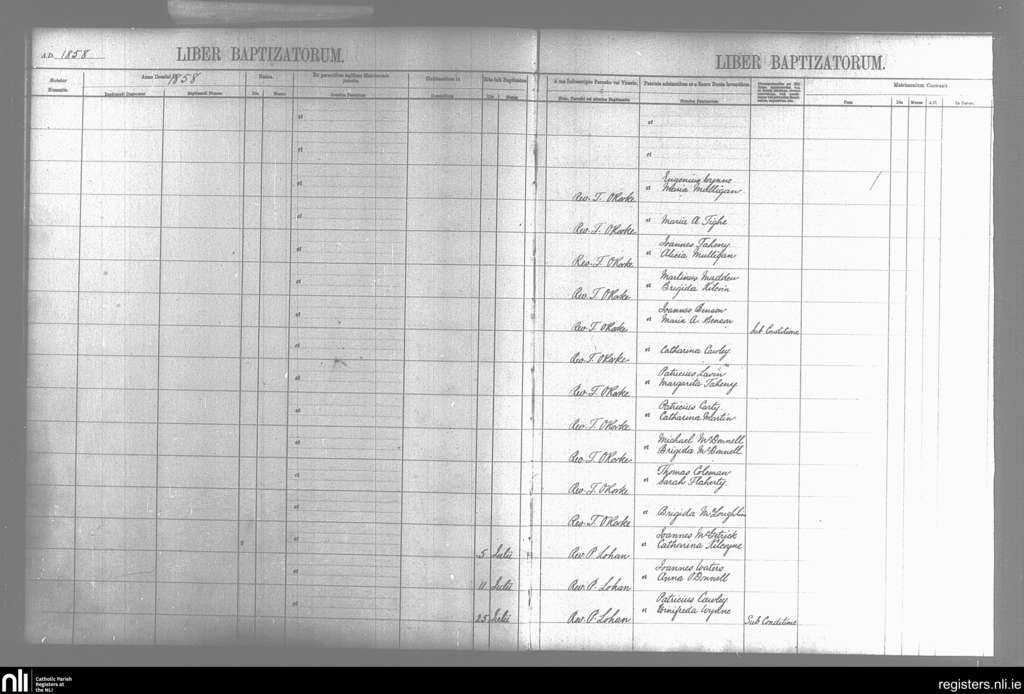 A.D. 1858
LIBER BAPTIZATORUM.
LIBER BAPTIZATORUM.
Anno Domini 1858
Matrimonium Contraxit
et
et
et
et
et Eugenius Wynne
Maria Mulligan
Rev. T. O'Rorke
et
et Maria A. Tighe
Rev. T. O'Rorke
et
Joannes Taheny
et Alicia Mulligan
Rev. T. O'Rorke
et
Martinus Madden
et Brigida Kilcoin
Rev. T. O'Rorke
et
Joannes Benson
et Maria A. Benson
Rev. T. O'Rorke Sub Conditione
et
et Catharina Cawley
Rev. T. O'Rorke
et
Patricius Lavin
et Margarita Taheny
Rev. T. O'Rorke
et
Patricius Carty
et Catharina Martin
Rev. T. O'Rorke
et
Michael McDonnell
et Brigida McDonnell
Rev. T. O'Rorke
et
Thomas Coleman
et Sarah Flaherty
Rev. T. O'Rorke
et
et Brigida McLoughlin
Rev. T. O'Rorke
et
Joannes McGetrick
et Catharina Kilcoyne
5 Julii Rev. P. Lohan
et
Joannes Waters
et Anna O'Donnell
11 Julii Rev. P. Lohan
et
Patricius Cawley
et Winifreda Wynne
25 Julii Rev. P. Lohan Sub Conditione
nli Catholic Parish
Registers at
the NLI
registers.nli.ie